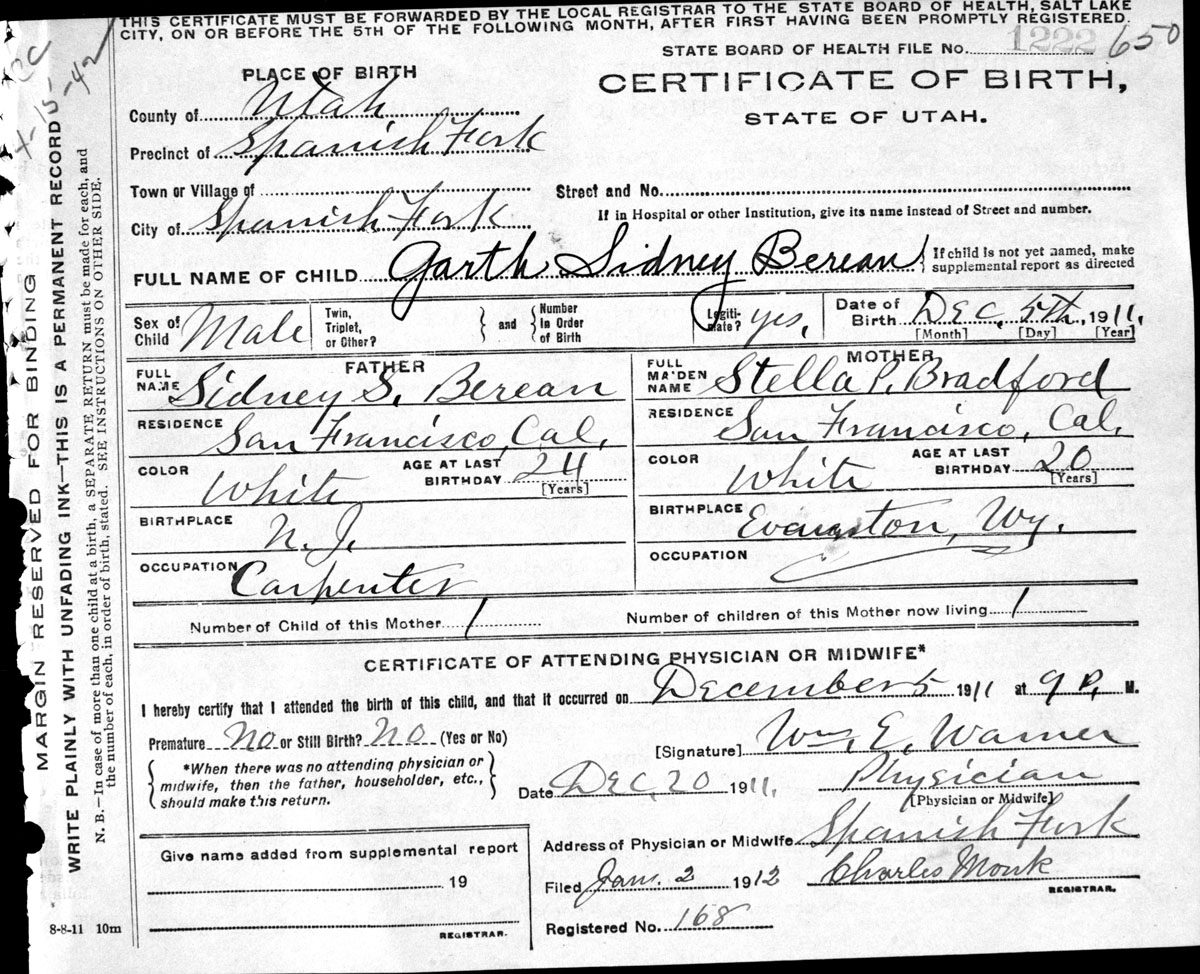 THIS CERTIFICATE MUST BE FORWARDED BY THE LOCAL REGISTRAR TO THE STATE BOARD OF HEALTH, SALT LAKE
CITY, ON OR BEFORE THE 5TH OF THE FOLLOWING MONTH, AFTER FIRST HAVING BEEN PROMPTLY REGISTERED.
STATE BOARD OF HEALTH FILE NO. 1222 650
PLACE OF BIRTH
CERTIFICATE OF BIRTH,
STATE OF UTAH.
County of Utah
Precinct of Spanish Fork
Town or Village of
Street and No.
City of Spanish Fork
If in Hospital or other Institution, give its name instead of Street and number.
FULL NAME OF CHILD Garth Sidney Berean
If child is not yet named, make
supplemental report as directed
Sex of Child Male
Twin, Triplet, or Other?
and
Number In Order of Birth
Legitimate? yes,
Date of Birth Dec. 5th, 1911,
[Month] [Day] [Year]
FATHER
FULL NAME Sidney S. Berean
RESIDENCE San Francisco, Cal.
COLOR White
AGE AT LAST BIRTHDAY 24
[Years]
BIRTHPLACE N. J.
OCCUPATION Carpenter
MOTHER
FULL MAIDEN NAME Stella P. Bradford
RESIDENCE San Francisco, Cal.
COLOR White
AGE AT LAST BIRTHDAY 20
[Years]
BIRTHPLACE Evanston, Wy.
OCCUPATION
Number of Child of this Mother 1
Number of children of this Mother now living 1
CERTIFICATE OF ATTENDING PHYSICIAN OR MIDWIFE*
I hereby certify that I attended the birth of this child, and that it occurred on December 5 1911 at 9 P. M.
Premature No or Still Birth? No (Yes or No)
*When there was no attending physician or
midwife, then the father, householder, etc.,
should make this return.
[Signature] Wm. E. Warner
Date Dec. 20 1911, Physician
[Physician or Midwife]
Address of Physician or Midwife Spanish Fork
Give name added from supplemental report
19
REGISTRAR.
Filed Jan. 2 1912 Charles Monk
REGISTRAR.
Registered No. 168
8-8-11 10m
MARGIN RESERVED FOR BINDING
WRITE PLAINLY WITH UNFADING INK—THIS IS A PERMANENT RECORD
N. B.—In case of more than one child at a birth, a SEPARATE RETURN must be made for each, and
the number of each, in order of birth, stated. SEE INSTRUCTIONS ON OTHER SIDE.